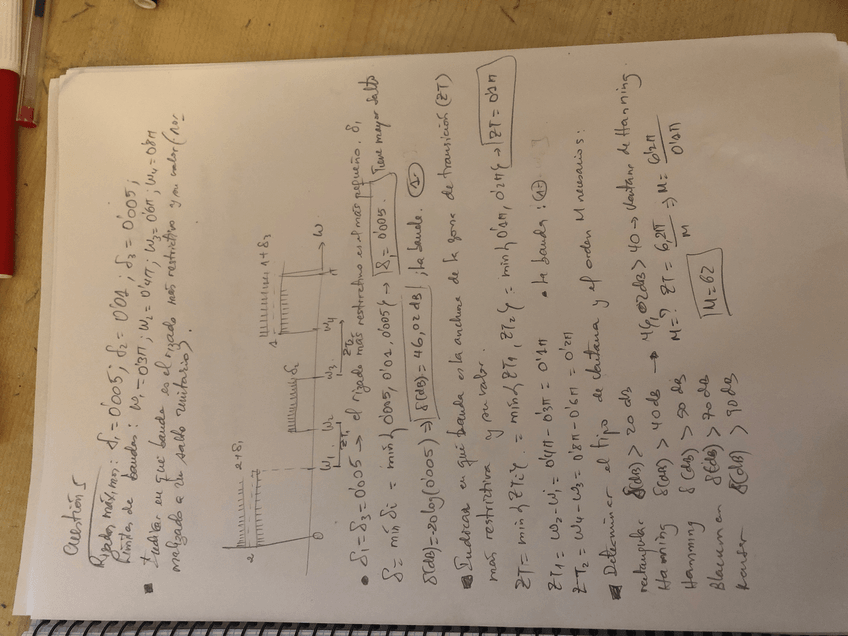 Cuestión 5
Rizados máximos: δ₁=0'005; δ₂=0'01; δ₃=0'005;
Límites de bandas: w₁=0'3π; w₂=0'4π; w₃=0'6π; w₄=0'8π
Indicar en qué banda es el rizado más restrictivo y su valor (nor-
malizado a un salto unitario).
2+δ₁
2
δ₂
1+δ₃
1
0
w₁
w₂
w₃
w₄
π
w
ZT₁
ZT₂
δ₁=δ₃=0'005 → el rizado más restrictivo es el más pequeño. δ₁
δ = mín δi = mín{0'005, 0'01, 0'005} → δ₁=0'005. Tiene mayor salto
δ(dB)=-20log(0'005) ⇒ δ(dB)=46,02 dB; 1ª banda.
Indicar en qué banda está la anchura de la zona de transición (ZT)
más restrictiva y su valor.
ZT = mín{ZTi} = mín{ZT₁, ZT₂} = mín{0'1π, 0'2π} → ZT=0'1π
ZT₁ = w₂-w₁ = 0'4π-0'3π = 0'1π
1ª banda:
ZT₂ = w₄-w₃ = 0'8π-0'6π = 0'2π
Determinar el tipo de ventana y el orden M necesarios:
rectangular δ(dB) > 20 dB
Hanning δ(dB) > 40 dB → 46,02dB > 40 → Ventana de Hanning.
Hamming δ(dB) > 50 dB
M=? ZT = 6,2π/M ⇒ M = 6'2π/0'1π
Blackman δ(dB) > 70dB
M=62
Kaiser δ(dB) > 90dB